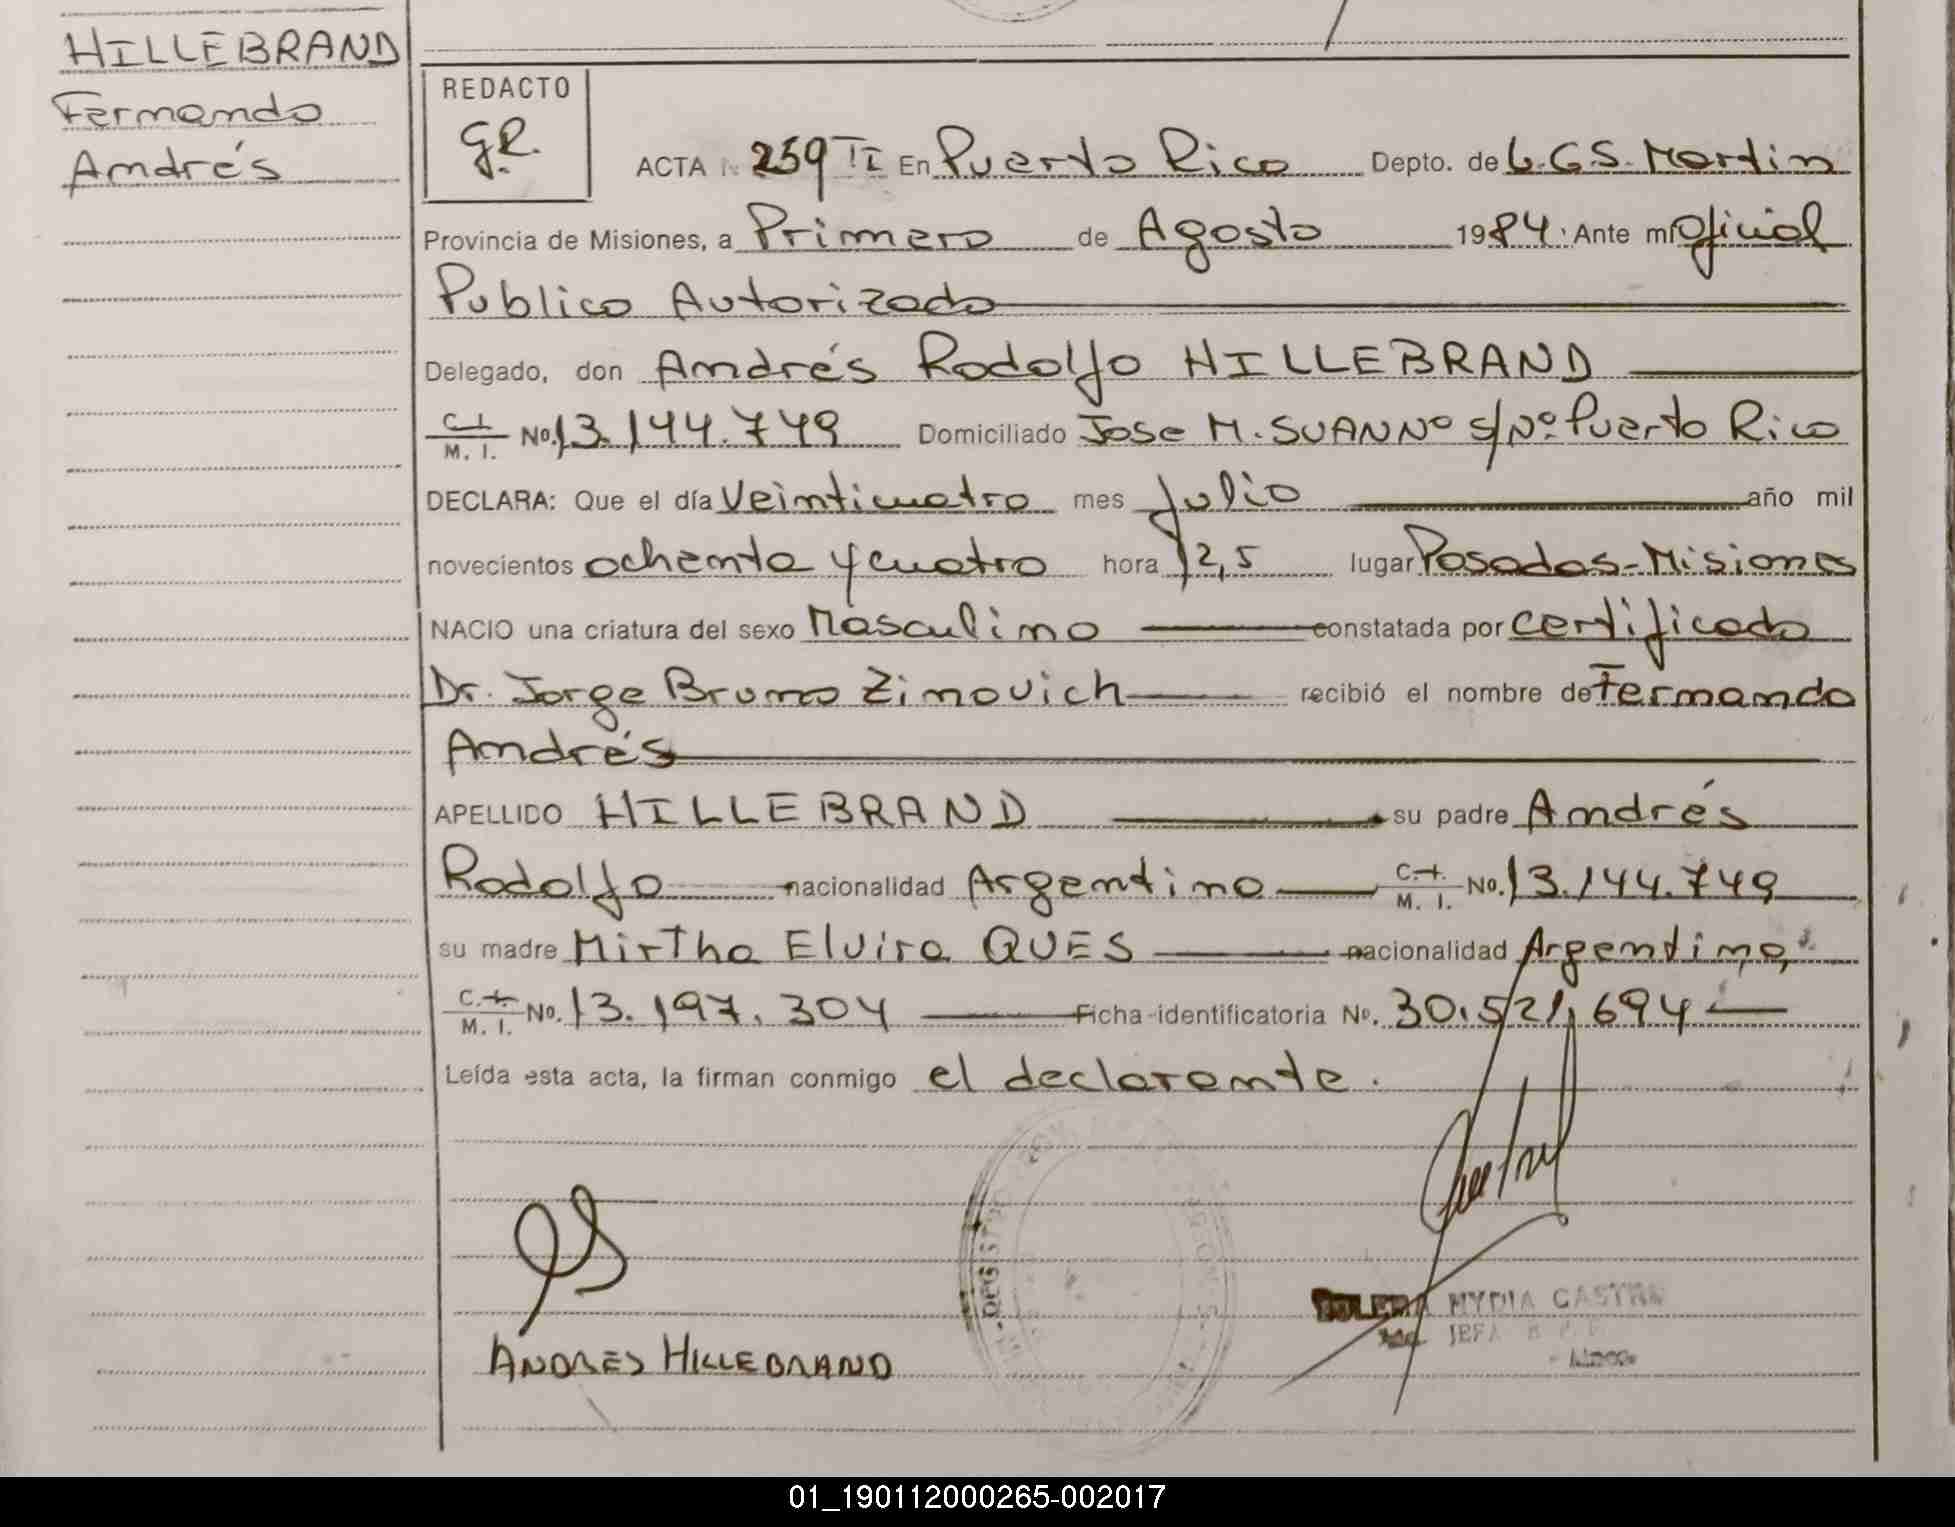 HILLEBRAND
Fernando
Andrés
REDACTO
G.R.
ACTA N 259 TI En Puerto Rico Depto. de L.G.S. Martin
Provincia de Misiones, a Primero de Agosto 1984. Ante mí Oficial
Publico Autorizado
Delegado, don Andrés Rodolfo HILLEBRAND
C.I. M. I. No. 13.144.749 Domiciliado Jose M. SUANNo s/Nº Puerto Rico
DECLARA: Que el día Veinticuatro mes Julio año mil
novecientos ochenta y cuatro hora 12,5 lugar Posadas-Misiones
NACIO una criatura del sexo Masculino constatada por certificado
Dr. Jorge Bruno Zinovich recibió el nombre de Fernando
Andrés
APELLIDO HILLEBRAND su padre Andrés
Rodolfo nacionalidad Argentino C.I. M. I. No. 13.144.749
su madre Mirtha Elvira QUES nacionalidad Argentina
C.I. M. I. No. 13.197.304 Ficha identificatoria No. 30.521.694
Leída esta acta, la firman conmigo el declarante.
REGISTRO
ANDRES HILLEBRAND
NYDIA CASTRO
JEFA
01_190112000265-002017